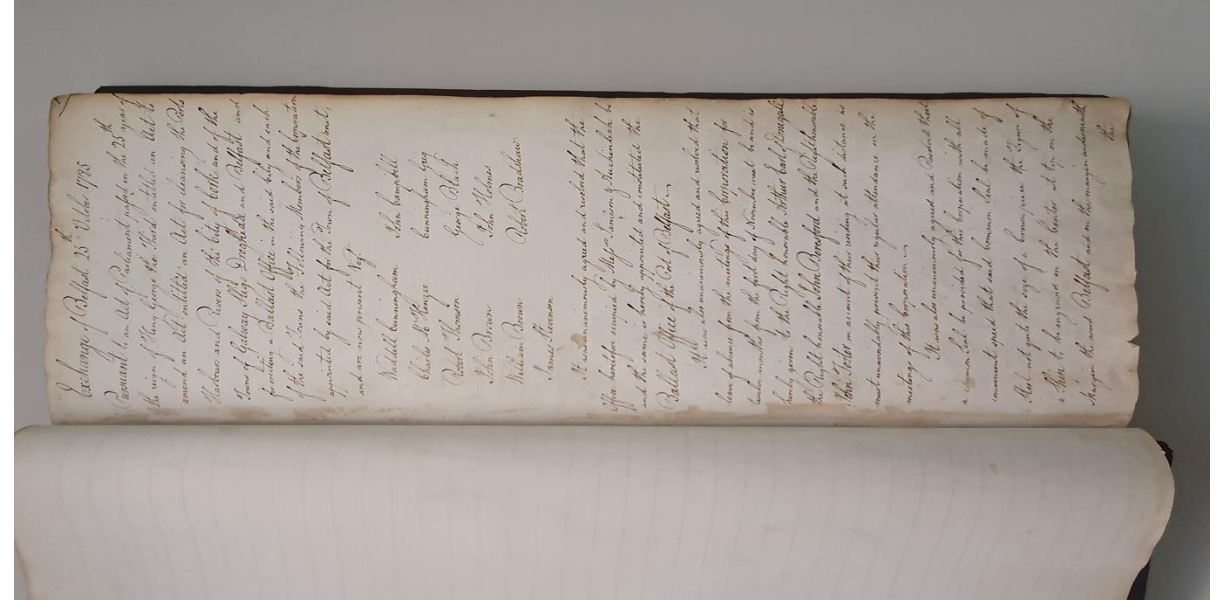 Exchange of Belfast 25th October 1785
Pursuant to an Act of Parliament passed in the 25th year of
the reign of King George the Third entitled an Act to
amend an Act entitled an Act for cleansing the Ports
Harbours and Rivers of the City of Corke and of the
Towns of Galway Sligo Drogheda and Belfast and
for erecting a Ballast Office in the said City and each
of the said Towns the following Members of the Corporation
appointed by said Act for the Town of Belfast met,
and are now present Viz.
Waddell Cunningham John Campbell
Charles McKenzie Cunningham Greg
Robert Thomson George Black
John Brown John Holmes
William Brown Robert Bradshaw
James Stevenson
It was unanimously agreed and resolved that the
Office heretofore occupied by Mr. Jas. be
and the same is hereby appointed and constituted the
Ballast Office of the Port of Belfast
It was also unanimously agreed and resolved that
leave of absence from the meetings of this Corporation for
twelve months from the first day of November next be and is
hereby given to the Right honorable Arthur Earl of Donegall
the Right honorable John Beresford and the Right honorable
John Foster on account of their residing at such distance as
must unavoidably prevent their regular attendance on the
meetings of this Corporation
It was also unanimously agreed and Resolved that
a common Seal be provided for this Corporation with all
convenient speed that said Common Seal be made of
Steel not quite the size of a Crown piece the figure of
a Ship to be engraved on the Center at top on the
Margin the word Belfast and on the margin underneath
the